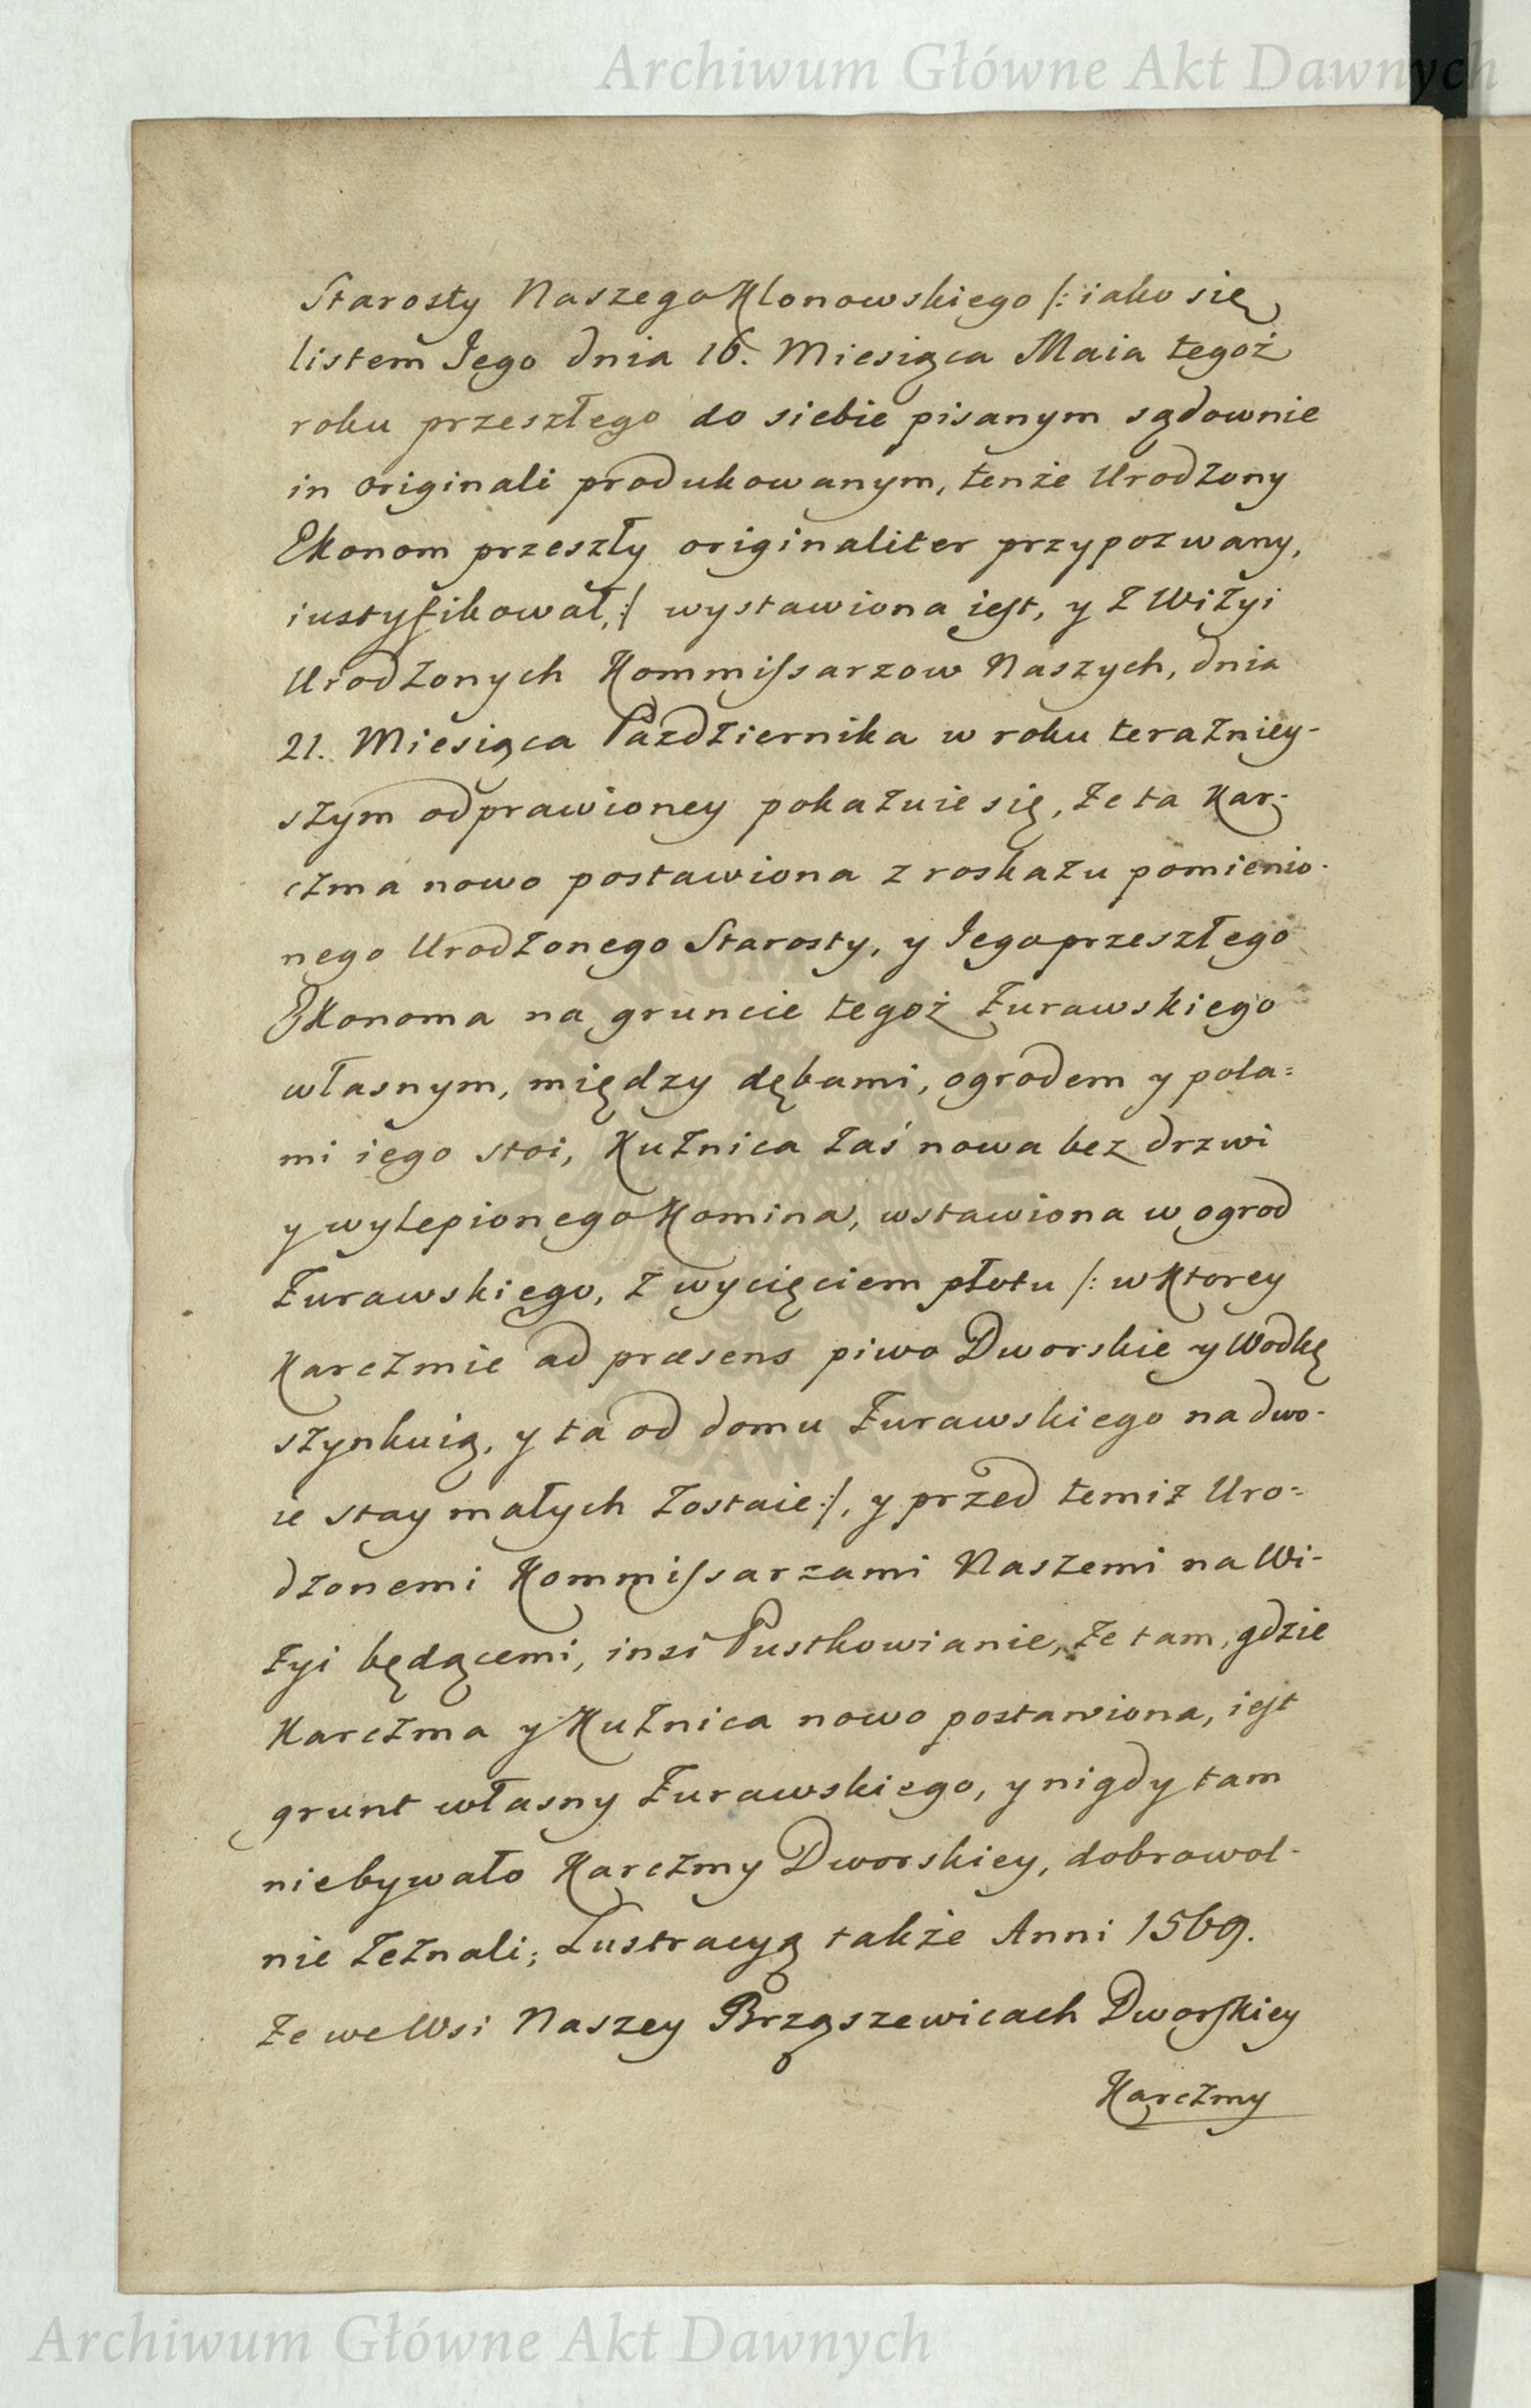 Archiwum Główne Akt Dawnych
Starosty Naszego Klonowskiego /: iako się
listem Jego dnia 16. Miesiąca Maia tegoż
roku przeszłego do siebie pisanym sądownie
in originali produkowanym, tenże Urodzony
Ekonom przeszły originaliter przypozwany,
iustyfikował, :/ wystawiona iest, y z Wizyi
Urodzonych Kommissarzow Naszych, dnia
21. Miesiąca Pazdziernika w roku terazniey-
szym odprawioney pokazuie się, że ta Kar-
czma nowo postawiona z roskazu pomienio-
nego Urodzonego Starosty, y Jego przeszłego
Ekonoma na gruncie tegoż Żurawskiego
własnym, między dębami, ogrodem y pola=
mi iego stoi, Kuznica zaś nowa bez drzwi
y wylepionego Komina, wstawiona w ogrod
Żurawskiego, z wycięciem płotu /: w Ktorey
Karczmie ad præsens piwo Dworskie y Wodkę
szynkuią, y ta od domu Żurawskiego na dwo-
ie stay małych zostaie :/, y przed temiż Uro=
dzonemi Kommissarzami Naszemi na Wi-
zyi będącemi, insi Pustkowianie, że tam, gdzie
Karczma y Kuznica nowo postawiona, iest
grunt własny Żurawskiego, y nigdy tam
niebywało Karczmy Dworskiey, dobrowol-
nie zeznali; Lustracyą także Anni 1569.
że we Wsi Naszey Brząszewicach Dworskiey
Karczmy
Archiwum Główne Akt Dawnych